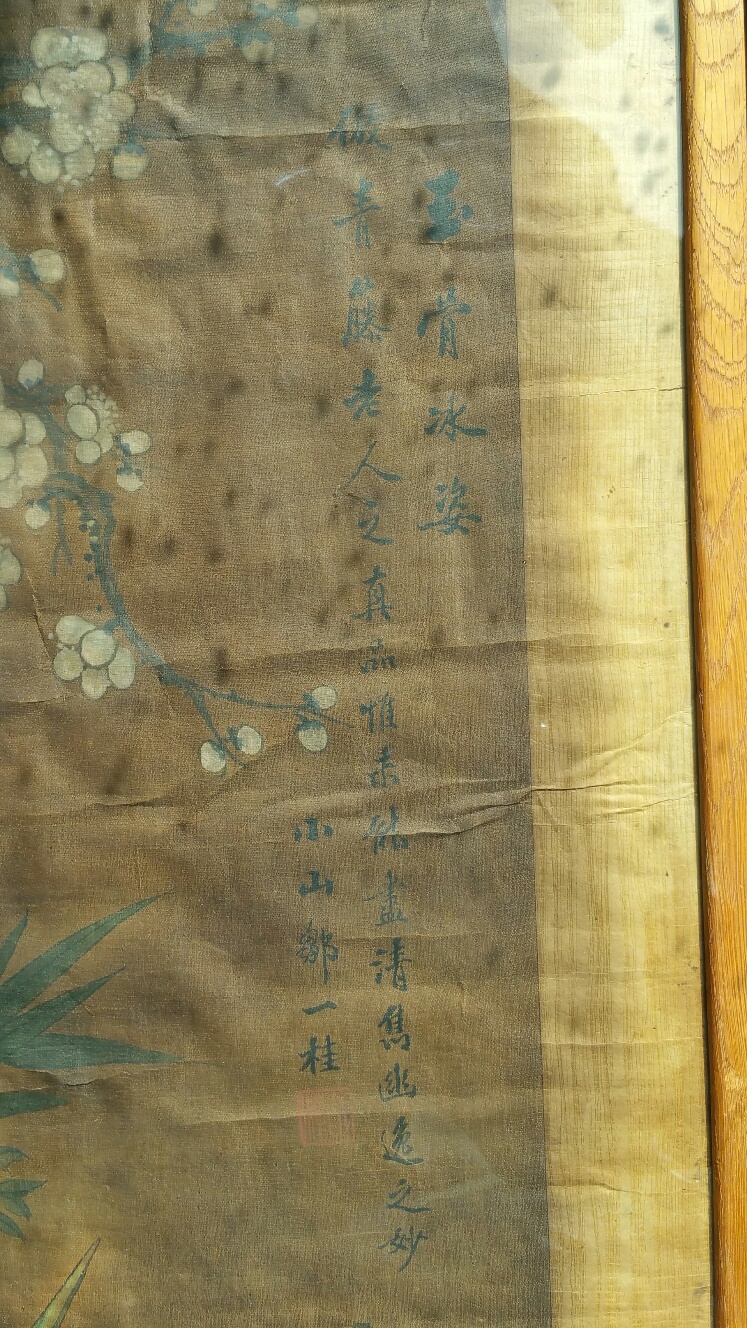 玉骨冰姿
倣青藤老人之真品惟未能盡清雋幽逸之妙
小山鄒一桂